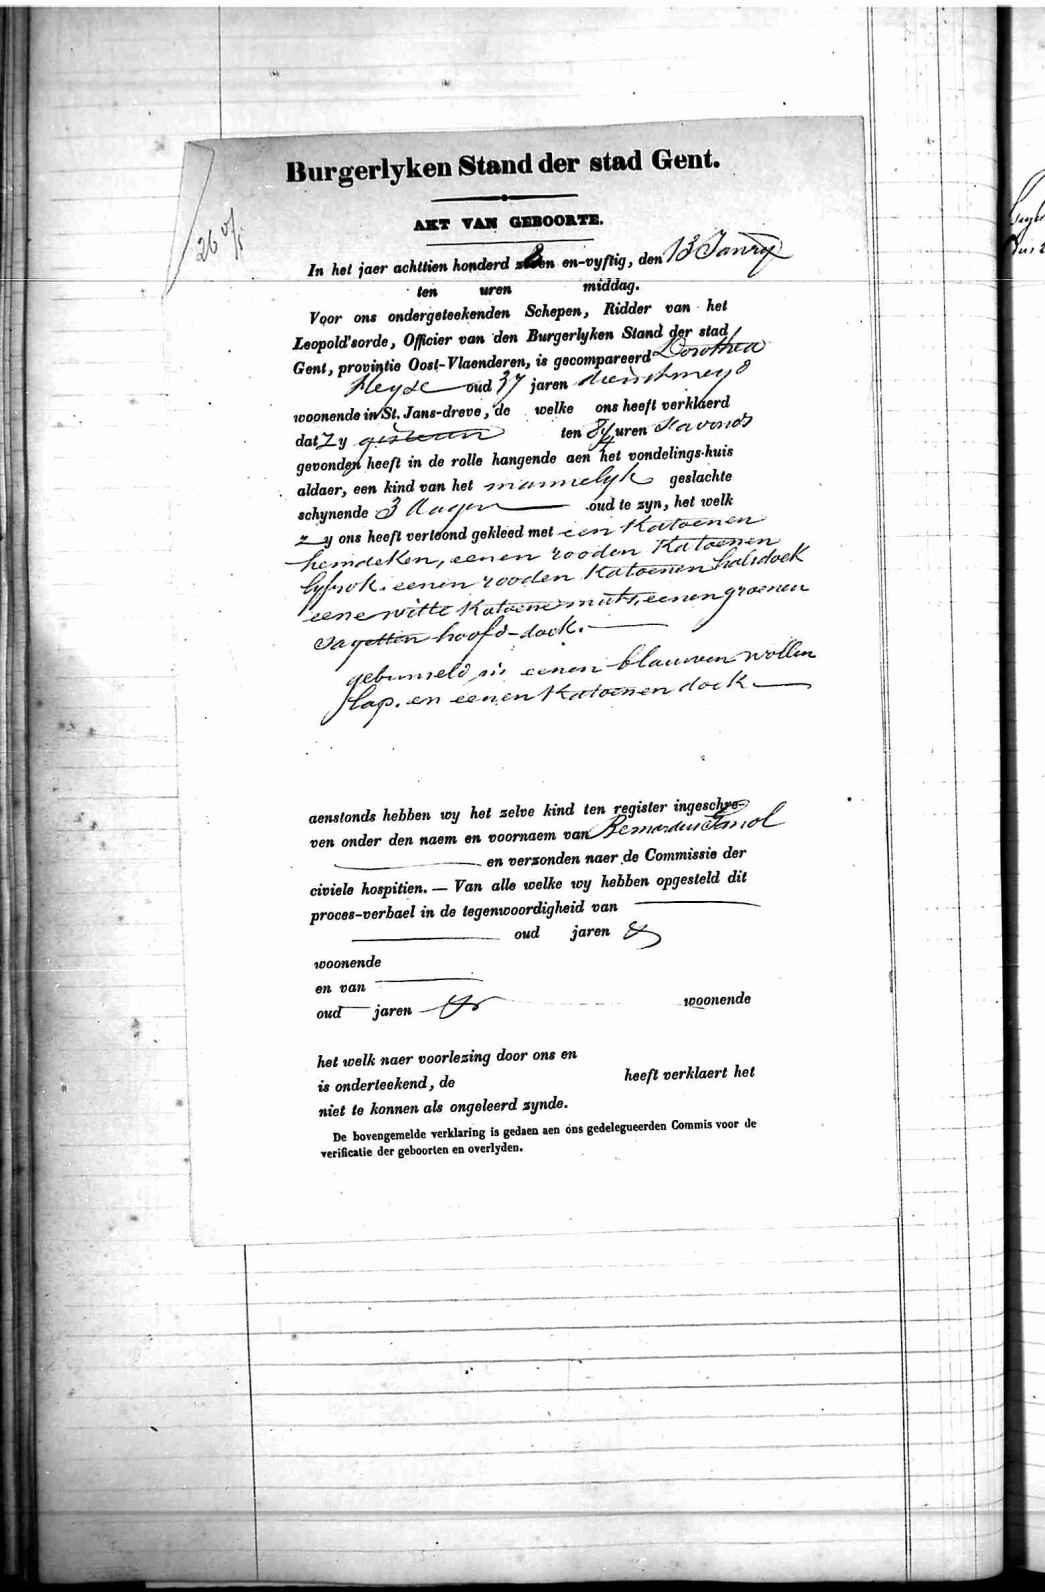 Burgerlyken Stand der stad Gent.
AKT VAN GEBOORTE.
26
In het jaer achttien honderd 8 en-vyftig, den 13 Janry
ten uren middag.
Voor ons ondergeteekenden Schepen, Ridder van het
Leopold'sorde, Officier van den Burgerlyken Stand der stad
Gent, provintie Oost-Vlaenderen, is gecompareerd Dorothea
Heyde oud 37 jaren
woonende in St. Jans-dreve, de welke ons heeft verklaerd
dat zy gisteren ten uren s'avonds
gevonden heeft in de rolle hangende aen het vondelings-huis
aldaer, een kind van het mannelyk geslachte
schynende 3 dagen oud te zyn, het welk
zy ons heeft vertoond gekleed met een Katoenen
hemdeken, eenen rooden Katoenen
lyfrok. eenen rooden Katoenen halsdoek
eene witte Katoene muts, eenen groenen
sayetten hoofd-doek.
gebunseld in eenen blauwen wollen
lap. en eenen Katoenen doek
aenstonds hebben wy het zelve kind ten register ingeschre-
ven onder den naem en voornaem van Bernardus
en verzonden naer de Commissie der
civiele hospitien. — Van alle welke wy hebben opgesteld dit
proces-verbael in de tegenwoordigheid van
oud jaren
woonende
en van
oud jaren woonende
het welk naer voorlezing door ons en
is onderteekend, de heeft verklaert het
niet te konnen als ongeleerd zynde.
De bovengemelde verklaring is gedaen aen ons gedelegueerden Commis voor de
verificatie der geboorten en overlyden.